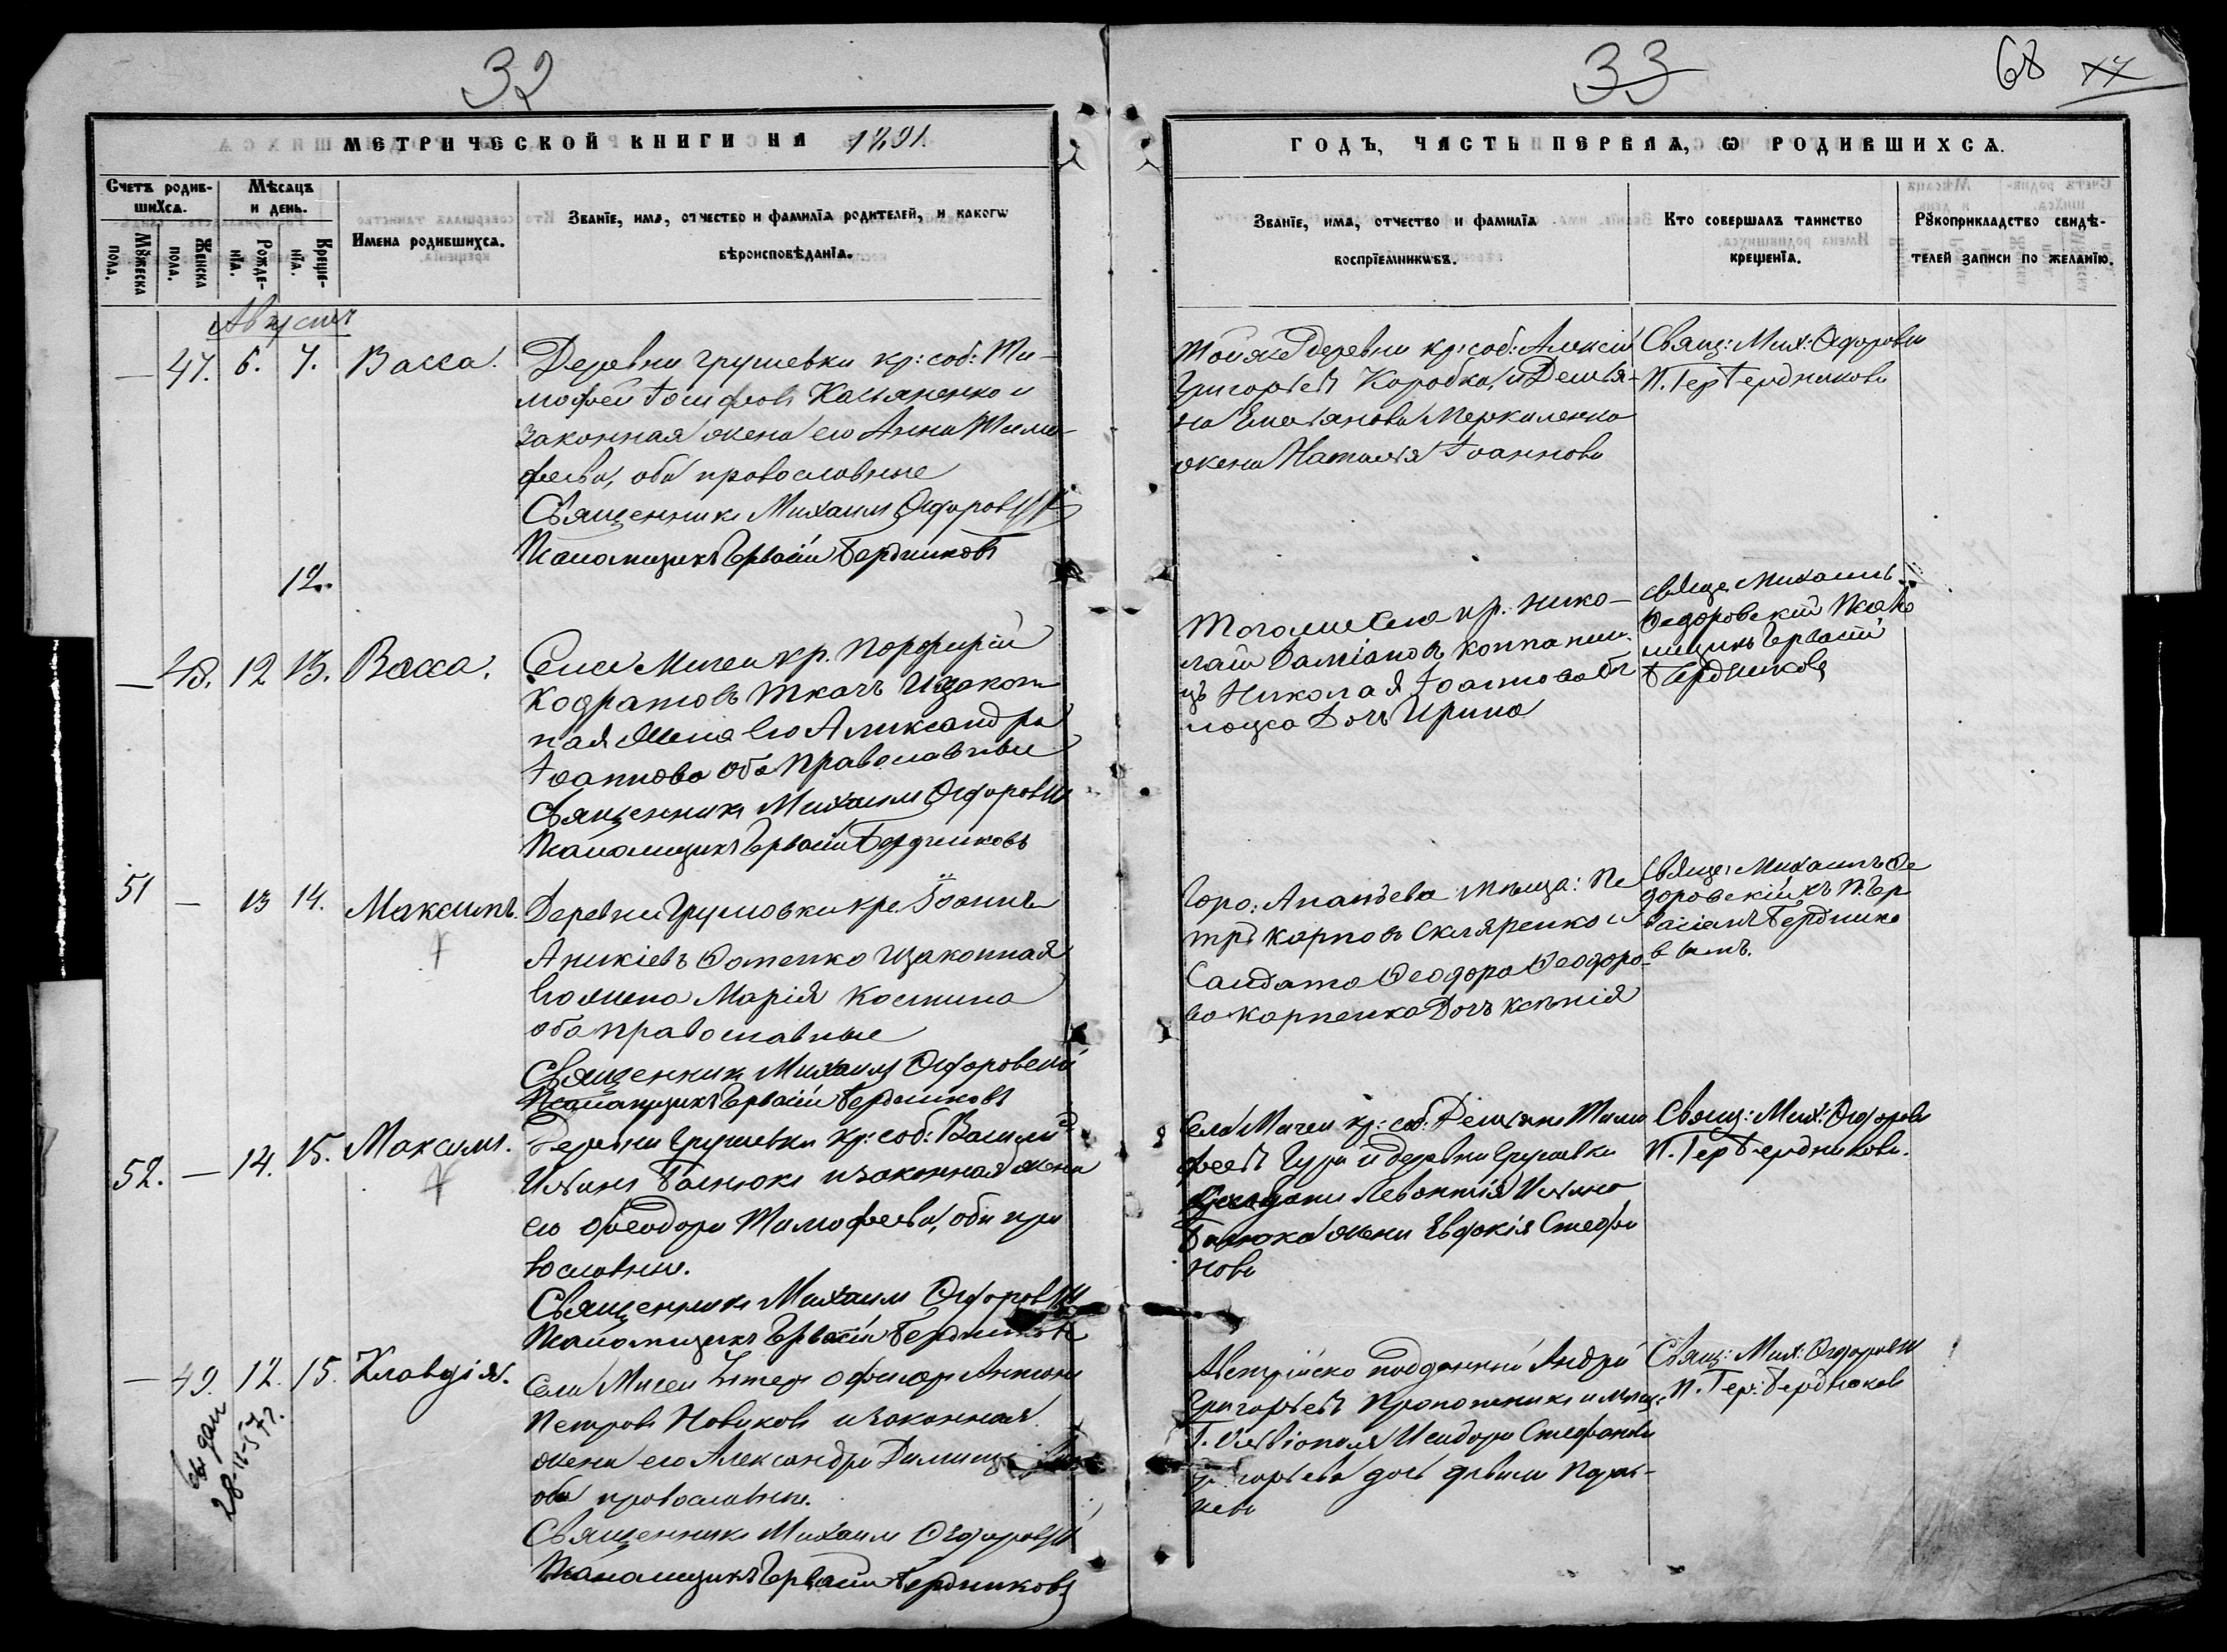 32
МЕТРИЧЕСКОЙ КНИГИ НА 1891.
Счетъ родив-
шихся.
Мѣсяцъ
и день.
Мꙋжеска
пола.
Женска
пола.
Рожде-
нїѧ.
Креще-
нїѧ.
Имена родившихсѧ.
Званїе, имѧ, отчество и фамилїѧ родителей, и какогѡ
вѣроисповѣданїѧ.
Августъ
— 47. 6. 7. Васса.
Деревни Грушевки кр: соб: Ти-
мофей Іосифовъ Касьяненко и
законная жена его Анна Тимо-
феева, оба православные
Священникъ Михаилъ Ѳедоровскій
Псаломщикъ Гервасій Бердниковъ
12.
— 48. 12 13. Васса.
Села Мигеи кр. Порфирій
Кодратовъ Ткачъ и закон
ная жена его Александра
Іоаннова оба православные
Священникъ Михаилъ Ѳедоровскій
Псаломщикъ Гервасій Бердниковъ
51 — 13 14. Максимъ.
Деревни Грушовки кре. Іоаннъ
Аникіевъ Фоменко и законная
его жена Марія Костина
оба православные
Священникъ Михаилъ Ѳедоровскій
Псаломщикъ Гервасій Бердниковъ
52. — 14. 15. Максимъ.
Деревни Грушевки кр: соб: Василій
Ильинъ Балюкъ и законная жена
его Ѳеодора Тимофеева, оба пра
вославные.
Священникъ Михаилъ Ѳедоровскій
Псаломщикъ Гервасій Бердниковъ
— 49. 12. 15. Клавдія.
Села Мигеи Унтеръ офицеръ Антонъ
Петровъ Новиковъ и законная
жена его Александра
оба православные.
Священникъ Михаилъ Ѳедоровскій
Псаломщикъ Гервасій Бердниковъ
28-11-57 г.
33
68
ГОДЪ, ЧАСТЬ ПЕРВАѦ, Ѡ РОДИВШИХСѦ.
Званїе, имѧ, отчество и фамилїѧ
воспрїемникѡвъ.
Кто совершалъ таинство
крещенїѧ.
Рꙋкоприкладство свидѣ-
телей записи по желанїю.
Той же деревни кр: соб: Алексій
Григорьевъ Коробка, и Демья-
на Емельянова Меркиленка
жена Наталія Іоаннова
Свящ: Мих: Ѳедоровскій
П. Гер Бердниковъ
Тогоже села кр. Нико-
лай Даміановъ
Николая Іоаннова
дочь Ирина
свяще Михаилъ
Ѳедоровскій Псало
мщикъ Гервасій
Бердниковъ
Горо: Ананьева мѣща: Пе
тръ Карповъ Скляренко и
Салдата Ѳеодора Ѳеодоро-
ва Карпенка Дочь Ксенія
Свяще: Михаилъ Ѳе
доровскій съ П. Гер
васіемъ Бердшико
вымъ.
Села Мигеи кр: соб: Демьянъ Тимо
феевъ Гура и деревни Грушевки
Леонтія Ильина
Балюка жена Евдокія Стефа
нова
Свящ: Мих: Ѳедоровскій
П. Гер Бердниковъ.
Австрійско подданный Андрей
Григорьевъ и мѣщ:
Исидора Стефанова
Григорьева дочь дѣвица Параs-
кева
Свящ: Мих: Ѳедоровскій
П. Гер: Бердниковъ